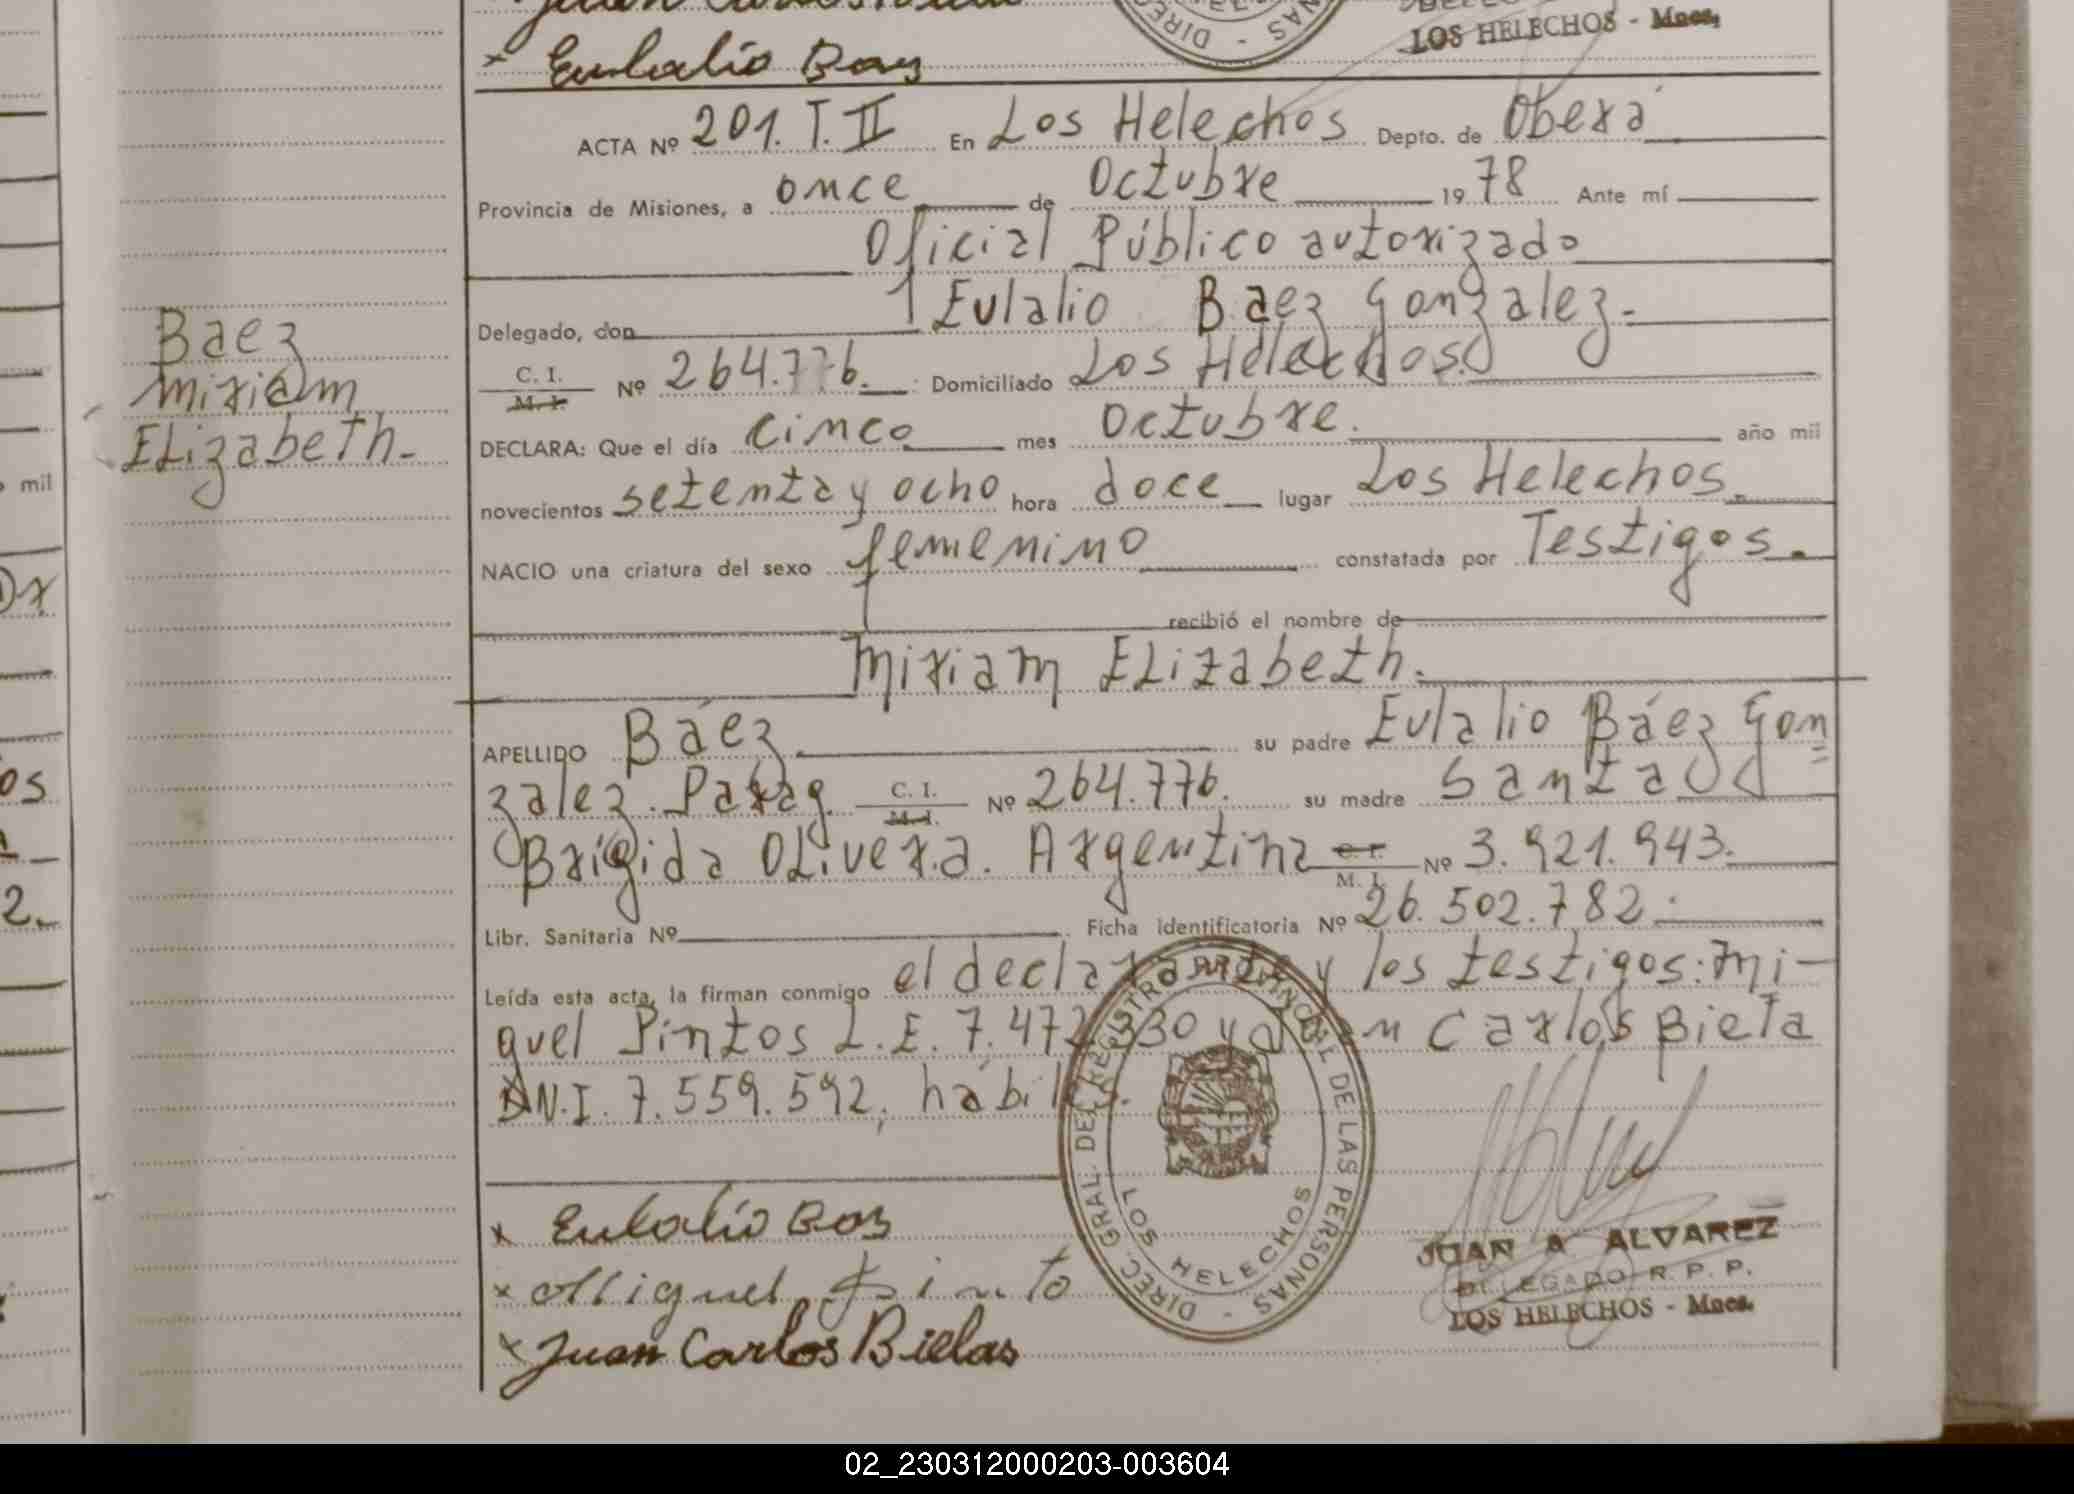 Eulalio Baez
LOS HELECHOS - Mnes.
ACTA Nº 201. T. II En Los Helechos Depto. de Oberá
Provincia de Misiones, a once de Octubre 1978 Ante mí
Oficial Público autorizado
Delegado, don Eulalio Baez Gonzalez.-
C. I. M. I. Nº 264.776. Domiciliado Los Helechos.
DECLARA: Que el día cinco mes Octubre. año mil
novecientos setenta y ocho hora doce lugar Los Helechos.
NACIO una criatura del sexo femenino constatada por Testigos.
recibió el nombre de
Miriam ELizabeth.
APELLIDO Báez su padre Eulalio Báez Gon
zalez. Parag. C. I. M. I. Nº 264.776. su madre Santa
Brígida OLivera. Argentina C. I. M. I. Nº 3.921.943.
Libr. Sanitaria Nº Ficha identificatoria Nº 26.502.782.
Leída esta acta, la firman conmigo el declarante y los testigos: Mi-
guel Pintos L.E. 7.472.330 y Juan Carlos Biela
DN.I. 7.559.592, hábiles.
x Eulalio Baez
x Miguel Pinto
x Juan Carlos Bielas
Baez
Miriam
ELizabeth.-
DIREC. GRAL. DEL REGISTRO PROVINCIAL DE LAS PERSONAS -
LOS HELECHOS
JUAN A ALVAREZ
DELEGADO R. P. P.
LOS HELECHOS - Mnes.
mil
os
2.-
02_230312000203-003604